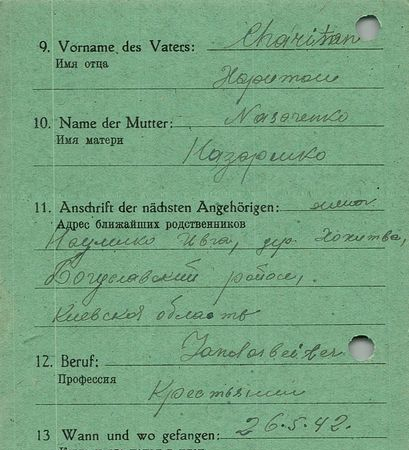 9. Vorname des Vaters: Chariton
Имя отца
Харитон
10. Name der Mutter: Nasarenko
Имя матери
Назаренко
11. Anschrift der nächsten Angehörigen: жена
Адрес ближайших родственников
Ивга, дер. Хохитва,
Богуславский район,
Киевская область
12. Beruf: Landarbeiter
Профессия
Крестьянин
13 Wann und wo gefangen: 26.5.42.